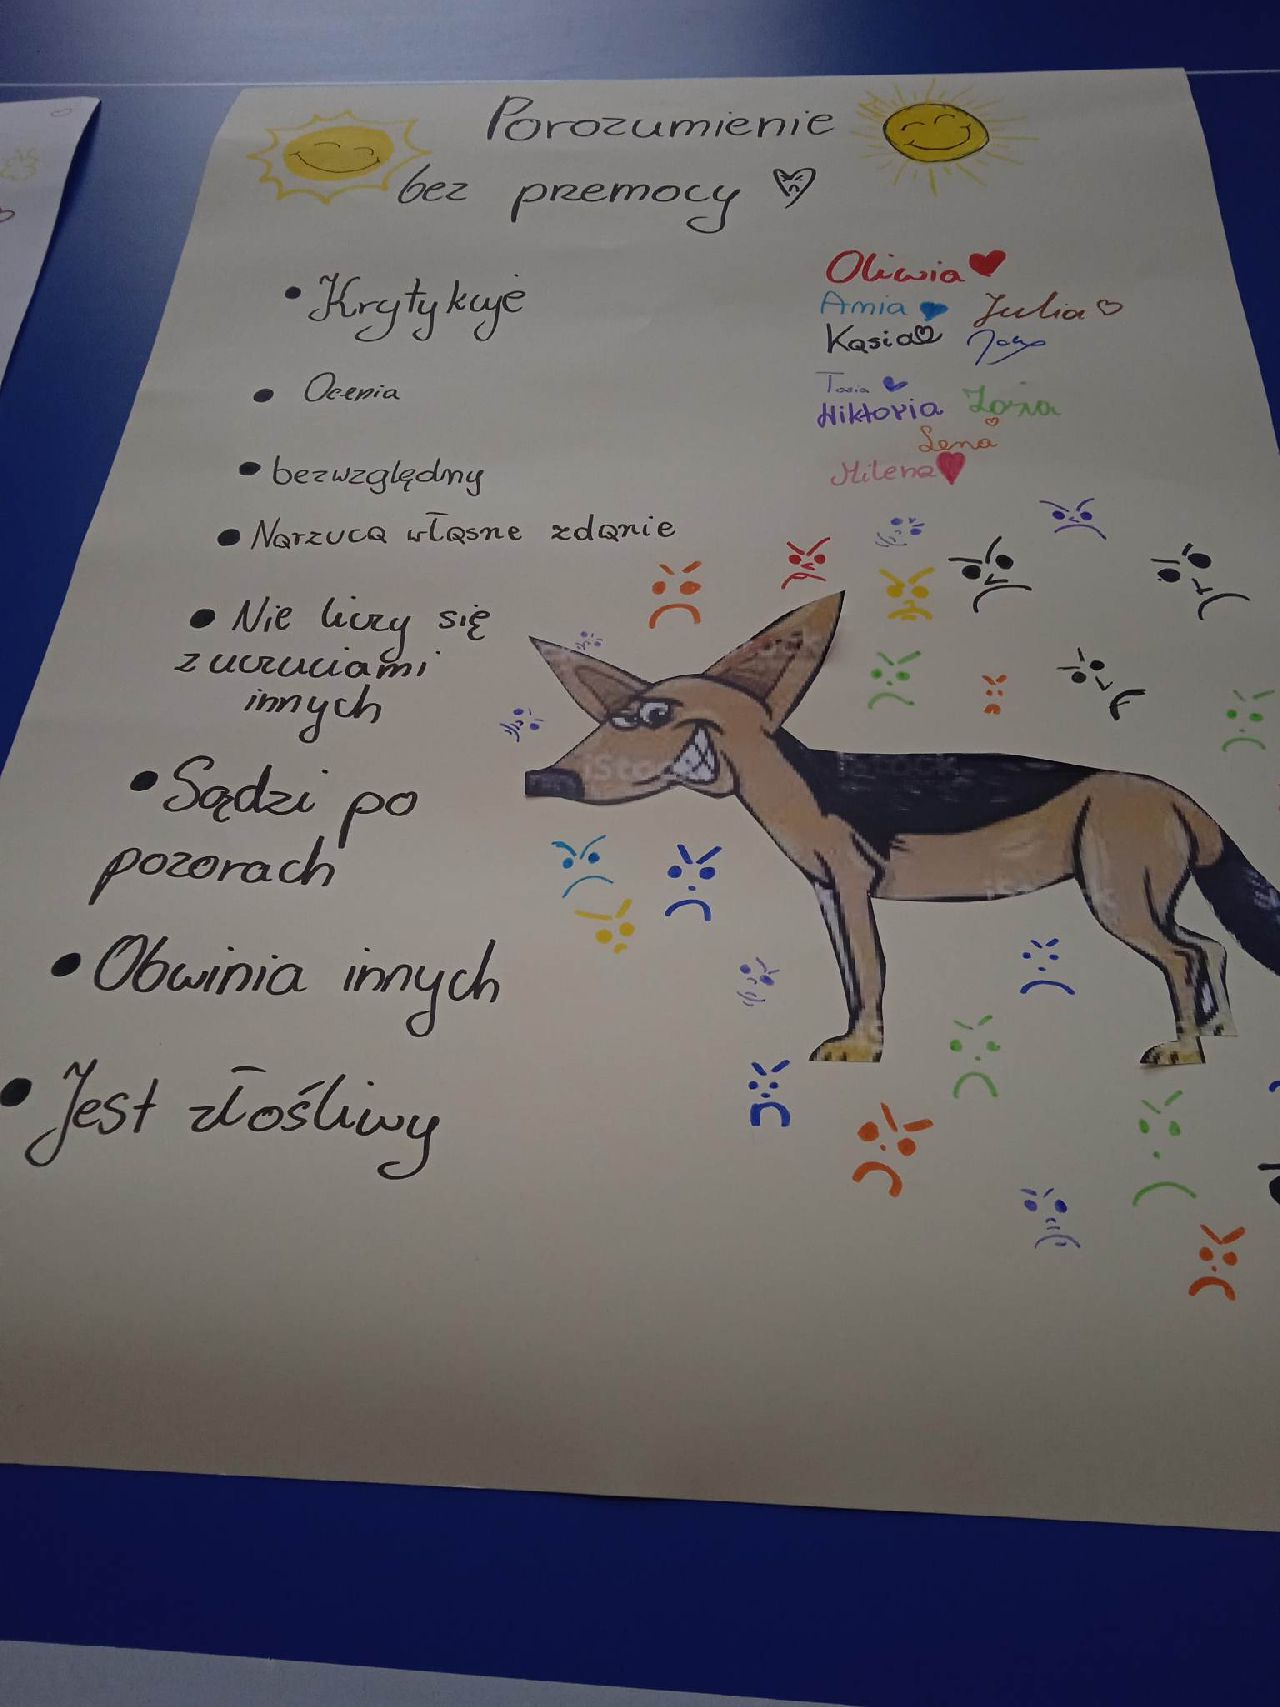 Porozumienie
bez premocy
• Krytykuje
• Ocenia
• bezwzględny
• Narzuca własne zdanie
• Nie liczy się
z uczuciami
innych
• Sądzi po
pozorach
• Obwinia innych
• Jest złośliwy
Oliwia
Amia Julia
Kasia
Tosia
Wiktoria Zosia
Lena
Milena
iStock
iStock
iStock